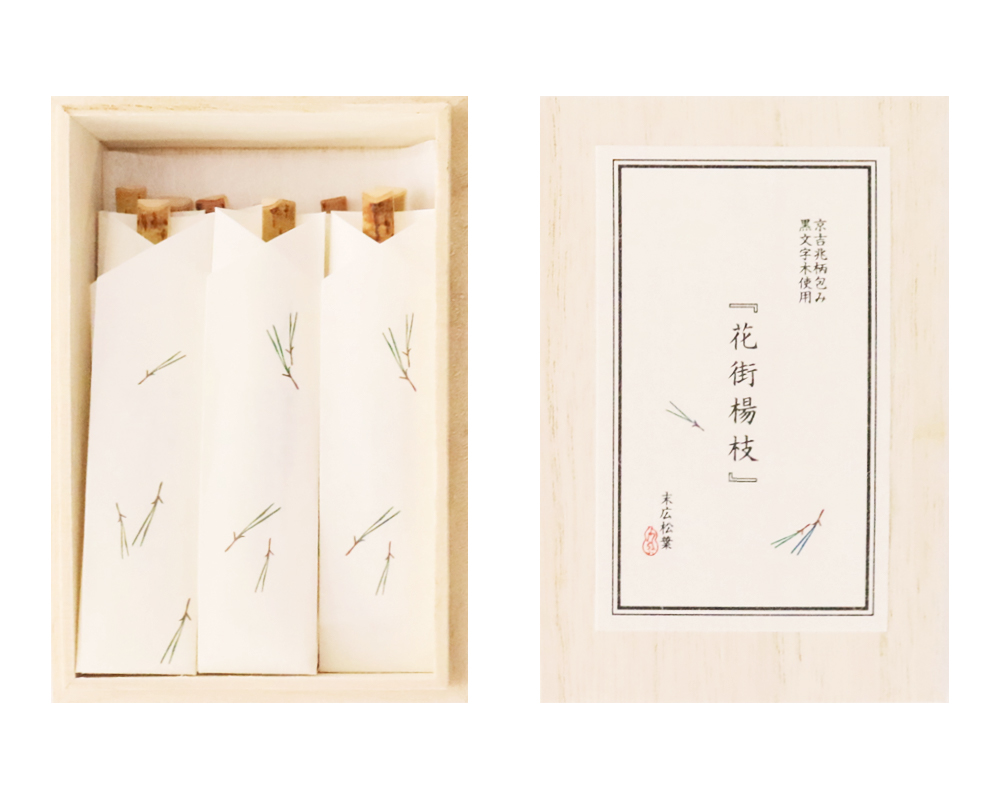 京吉兆柄包み
黒文字木使用
『花街楊枝』
末広松葉